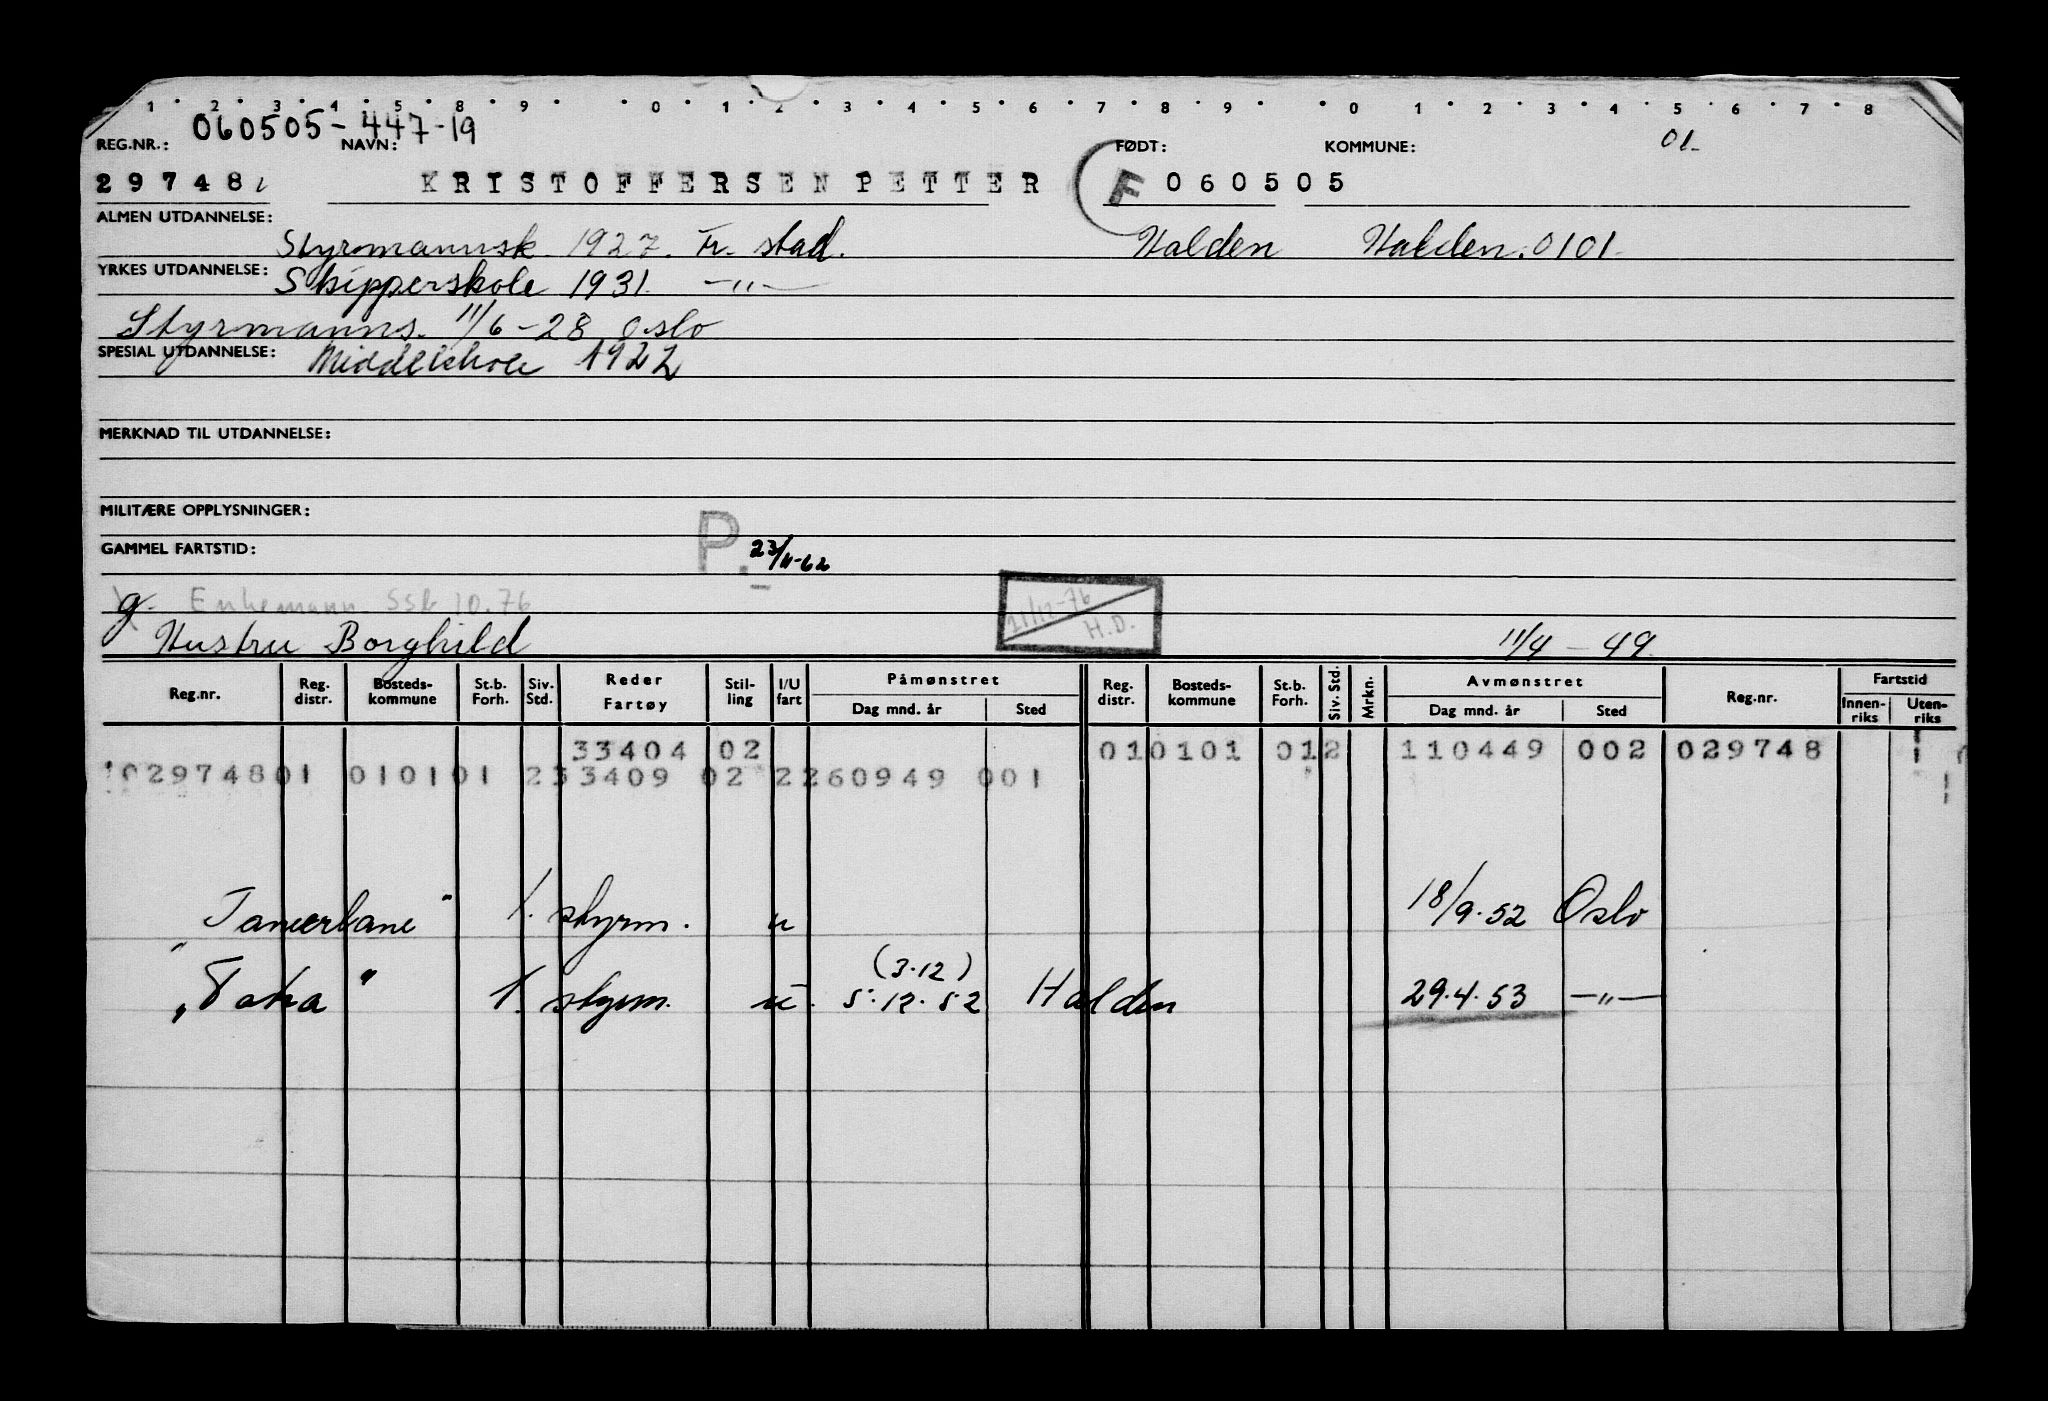 1 · 2 · 3 · 4 · 5 · 8 · 9 · · 0 · 1 · 2 · 3 · 4 · 5 · 6 · 7 · 8 · 9 · · 0 · 1 · 2 · 3 · 4 · 5 · 6 · 7 · 8
REG.NR.: 060505-447-19 NAVN: FØDT: KOMMUNE: 01
29748 KRISTOFFERSEN PETTER F 060505
ALMEN UTDANNELSE: Styrmannsk 1927. Fr. stad. Halden Halden. 0101.
YRKES UTDANNELSE: Skipperskole 1931. —"—
Styrmanns. 11/6-28 Oslo
SPESIAL UTDANNELSE: Middelskole 1922
MERKNAD TIL UTDANNELSE:
MILITÆRE OPPLYSNINGER:
GAMMEL FARTSTID: P. 23/11-62
g. Enkemann Ssk 10.76 21/12-76 H.D.
Hustru Borghild 11/4 - 49.
Reg.nr. Reg. distr. Bosteds-kommune St.b. Forh. Siv. Std. Reder Fartøy Stil-ling I/U fart Påmønstret Dag mnd. år Sted Reg. distr. Bosteds-kommune St.b. Forh. Siv. Std. Mrkn. Avmønstret Dag mnd. år Sted Reg.nr. Fartstid Innen-riks Uten-riks
33404 02 010101 012 110449 002 029748
02974801 010101 233409 02 2260949 001
"Tamerlane" 1. styrm. u 18/9.52 Oslo
(3.12)
"Taka" 1. styrm. u. 5.12.52 Halden 29.4.53 —"—